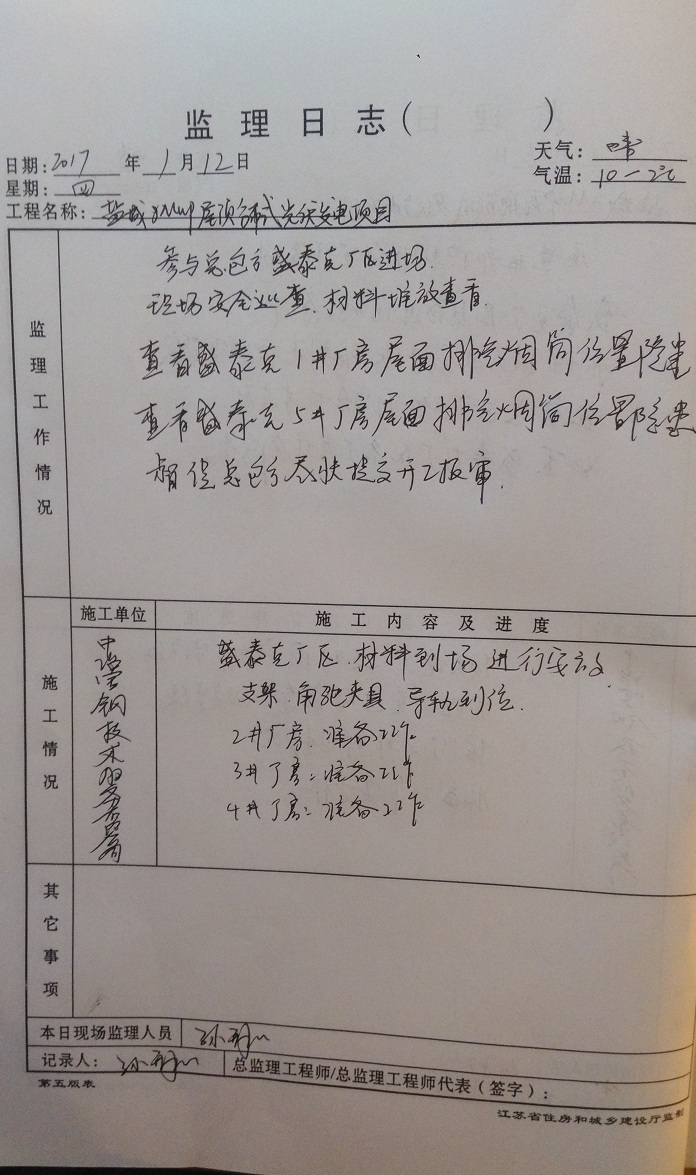 监理日志(    )
日期: 2017 年 1 月 12 日
天气: 晴
星期: 四
气温: 10—2℃
工程名称: 盐城 屋顶分布式光伏发电项目
监理工作情况
参与总包方盛泰克厂区进场.
现场安全巡查.材料堆放查看.
查看盛泰克1#厂房屋面排气烟筒位置隐患
查看盛泰克5#厂房屋面排气烟筒位置隐患
督促总包方尽快提交开工报审.
施工情况
施工单位
施工内容及进度
中 钢技术
盛泰克厂区.材料到场进行
支架.角驰夹具.导轨到位.
2#厂房:准备工作
3#厂房:准备工作
4#厂房:准备工作
其它事项
本日现场监理人员 孙
记录人: 孙
总监理工程师/总监理工程师代表(签字):
第五版表
江苏省住房和城乡建设厅监制